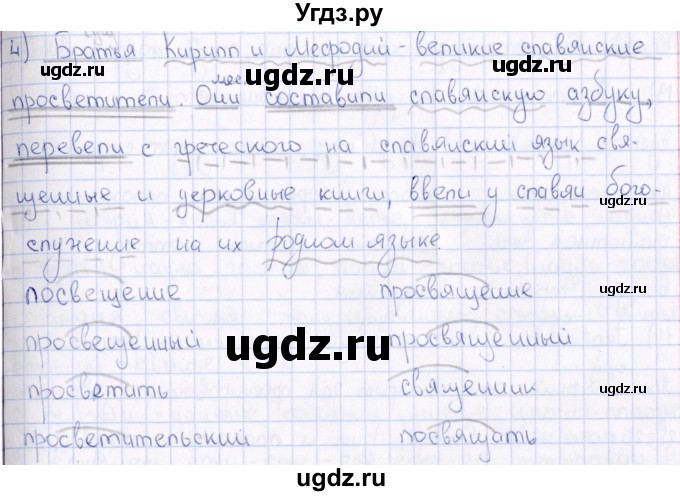 Угдз.ру
4) Братья Кирилл и Мефодий - великие славянские
просветители. Они составили славянскую азбуку,
мес
перевели с греческого на славянский язык свя-
щенные и церковные книги, ввели у славян бого-
служение на их родном языке.
посвещение просвящение
просвещенный просвященный
просветить священник
просветительский посвящать
ugdz.ru
ugdz.ru
ugdz.ru
ugdz.ru
ugdz.ru
ugdz.ru
ugdz.ru
ugdz.ru
ugdz.ru